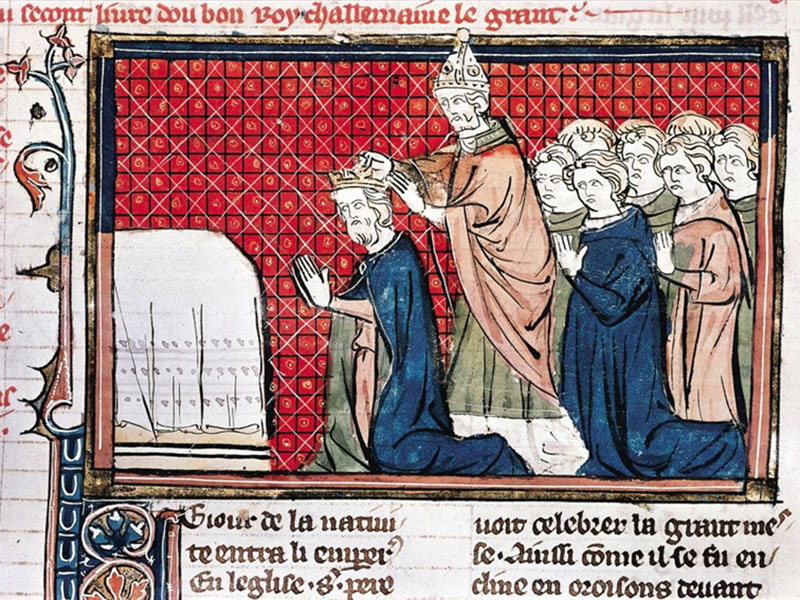 secont liure dou bon Roy challemaine le grant
E iour de la natiui
te entra li emper
En leglise · s · pere
uoit celebrer la grant mes
se · Ainsi cōme il se fu en
cline en oroisons deuant